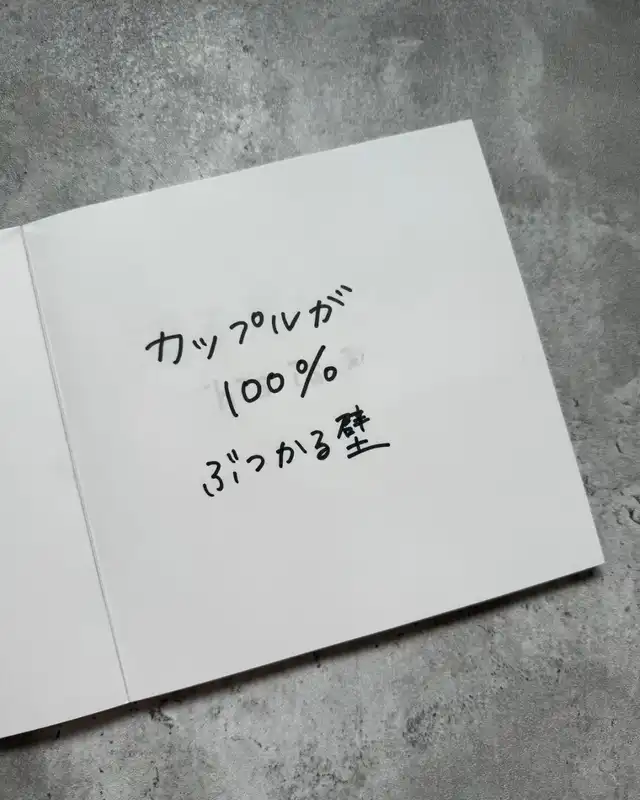 カップルが
100%
ぶつかる壁